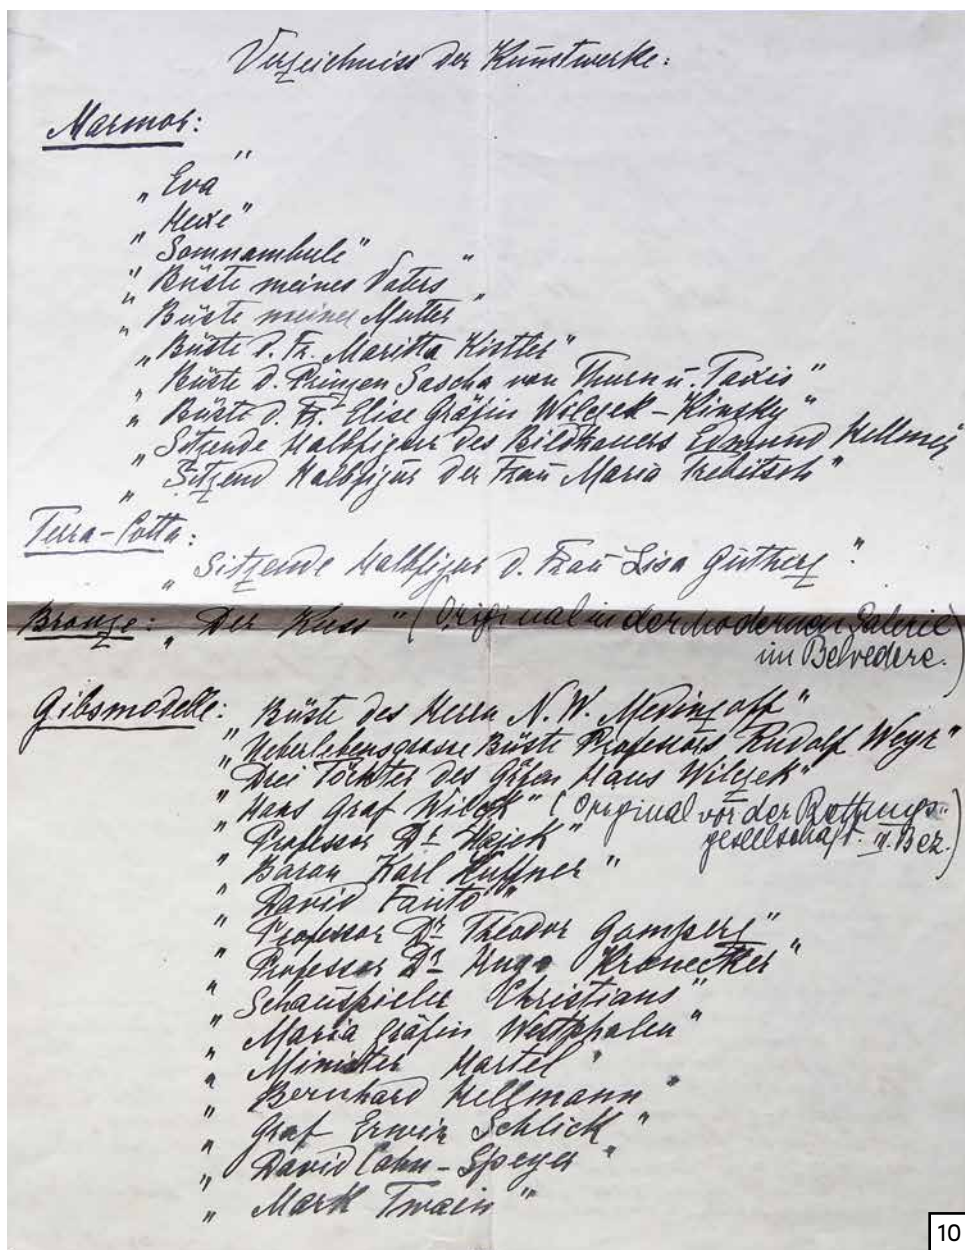 Verzeichniss der Kunstwerke:
Marmor:
„Eva"
„Hexe"
„Somnambule"
„Büste meines Vaters"
„Büste meiner Mutter"
„Büste d. Fr. Maritta
„Büste d. Prinzen Sascha von Thurn u. Taxis"
„Büste d. Fr. Elise Gräfin Wilczek-Kinsky"
„Sitzende Halbfigur des Bildhauers Edmund Hellmer
„Sitzend Halbfigur der Frau Maria Trebitsch"
Terra-Cotta:
„Sitzende Halbfigur d. Frau Lisa
Bronze: „Der Kuss" (Original in der Modernen Galerie
im Belvedere.)
Gibsmodelle: „Büste des Herrn N. W.
„Ueberlebensgrosse Büste Professors Rudolf Weyr"
„Drei Töchter des Grafen Hans Wilczek"
„Hans Graf Wilczek" (Original vor der Rettungs-
gesellschaft. III. Bez.)
„Professor Dr. Hajek"
„Baron Karl Kuffner"
„David Fanto"
„Professor Dr. Theodor Gomperz"
„Professor Dr. Hugo Kronecker"
„Schauspieler Christians"
„Maria Gräfin Westphalen"
„Minister Hartel"
„Bernhard Hellmann"
„Graf Erwin Schlick"
„David Cohn-Speyer"
„Mark Twain"
10